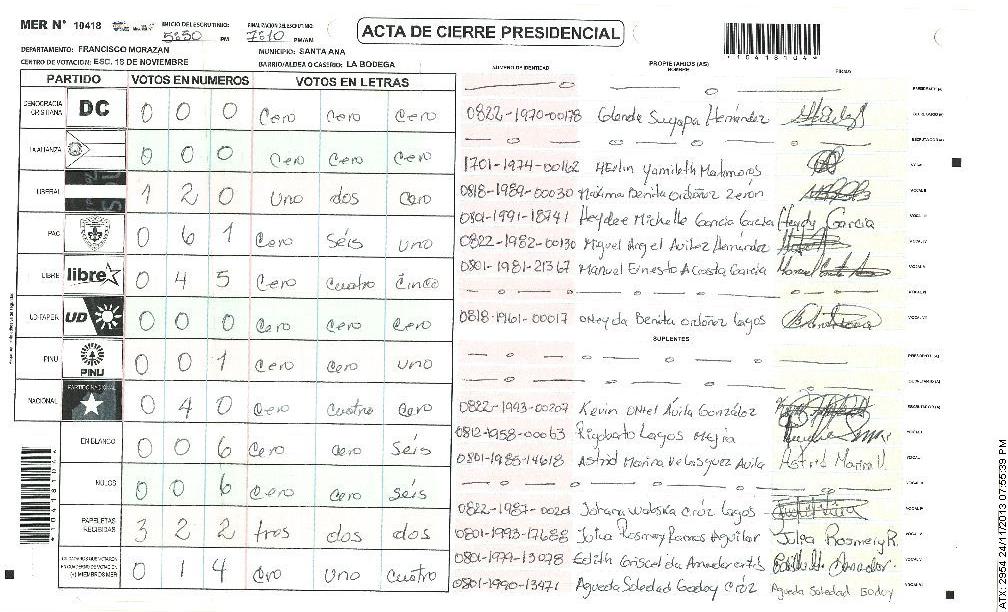 MER N° 10418
INICIO DEL ESCRUTINIO: 5:50 PM
FINALIZACION DEL ESCRUTINIO: 7:10 PM/AM
ACTA DE CIERRE PRESIDENCIAL
1041810 4
DEPARTAMENTO: FRANCISCO MORAZAN
MUNICIPIO: SANTA ANA
CENTRO DE VOTACION: ESC. 18 DE NOVIEMBRE
BARRIO/ALDEA O CASERIO: LA BODEGA
PARTIDO VOTOS EN NUMEROS VOTOS EN LETRAS
DEMOCRACIA CRISTIANA DC 0 0 0 Cero Cero Cero
LA ALIANZA 0 0 0 Cero Cero Cero
LIBERAL 1 2 0 Uno dos Cero
PAC 0 6 1 Cero Séis uno
LIBRE libre 0 4 5 Cero Cuatro Cinco
UD-FAPER UD 0 0 0 Cero Cero Cero
PINU PINU 0 0 1 Cero Cero uno
NACIONAL PARTIDO NACIONAL 0 4 0 Cero Cuatro Cero
EN BLANCO 0 0 6 Cero Cero Séis
NULOS 0 0 6 Cero Cero Séis
PAPELETAS RECIBIDAS 3 2 2 tres dos dos
(+) MIEMBROS MER 0 1 4 Cero Uno Cuatro
NUMERO DE IDENTIDAD PROPIETARIOS (AS) NOMBRE FIRMA
0822-1970-00178 Glenda Suyapa Hernández
1701-1974-00162 Yamileth Matamoros
0818-1989-00030 Benita Ordóñez Zerón
0801-1991-18741 Heydee Michelle Garcia Garcia Heydy Garcia
0822-1982-00130 Miguel Angel Avilez Hernández
0801-1981-21367 Manuel Ernesto Acosta Garcia
0818-1961-00017 Oneyda Benita Ordóñez Lagos
SUPLENTES
0822-1993-00207 Kevin Onel Ávila González
0812-1958-00063 Rigoberto Lagos Mejia
0801-1985-14618 Astrid Marina Velasquez Avila Astrid Marina V.
Johana Crúz Lagos
0801-1993-17688 Julia Rosmery Ramos Aguilar Julia Rosmery R.
0801-1979-13078 Edith
0801-1990-13471 Agueda Soledad Godoy Crúz Agueda Soledad Godoy
ATX: 2954 24/11/2013 07:55:39 PM